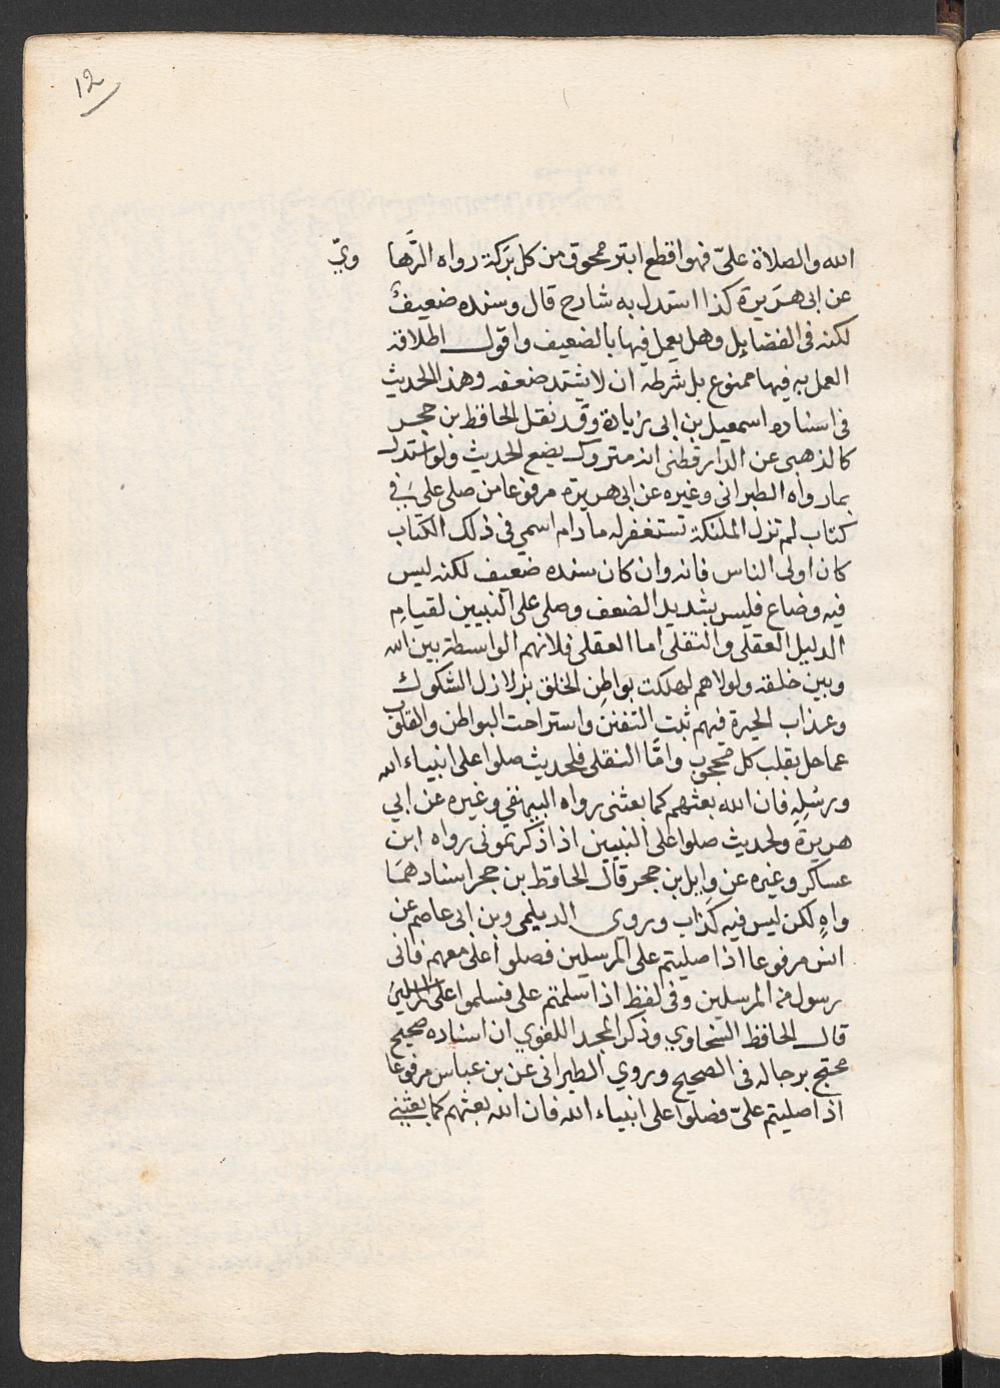 12
الله والصلاة علىّ فهو اقطع ابتر ممحوق من كل بَركة رواه الرَّها وىّ
عن ابى هريرة كذا استدل به شارح قال وسنده ضعيفٌ
لكنه فى الفضايل وهل يعمل فيها بالضعيف واقول اطلاقه
العمل به فيها ممنوع بل شرطه ان لا يشتد ضعفه وهذ الحديث
فى اسناده اسمعيل بن ابى زيادة وقد نقل الحافظ بن حجر
كالذهبى عن الدارقطنى انه متروك يضع الحديث ولو استدل
بما رواه الطبرانى وغيره عن ابى هريرة مرفوعا من صلى علىَ فى
كتاب لم تزل الملئكة تستغفر له ما دام اسمي فى ذلك الكتاب
كان اولى الناس فانه وان كان سنده ضعيف لكنه ليس
فيه وضاع فليس بشديد الضعف وصلى على النبيين لقيامِ
الدليل العقلى والنقلى اما العقلى فلانهم الواسطة بين الله
وبين خلقه ولولاهم لهلكت بواطِن الخلق بزلازل الشكوك
وعذاب الحيرة فبهم ثبت التفنن واستراحت البواطن والقلوب
عما حل بقلب كل محجوب وامَّا النقلى فلحديث صلوا على انبياء الله
ورسُلِهِ فان الله بعثهم كما بعثنى رواه البيهقي وغيره عن ابي
هريرة ولحديث صلوا على النبيين اذا ذكرتمونى رواه ابن
عساكر وغيره عن وايل بن حجر قال الحافظ بن حجر اسنادهمَا
واهٍ لكن ليس فيه كذاب وروى الديلمى وبن ابى عاصم عن
انس مرفوعا اذا صليتم على المرسلين فصلوا على معهم فانى
رسول من المرسلين وفى لفظ اذا سلمتم على فسلموا على المرسلين
قال الحافظ السخاوي وذكر المجد اللغوي ان اسناده صحيح
محتج برجاله فى الصحيح وروي الطبرانى عن بن عباس مرفوعا
اذا صليتم علىّ فصلوا على انبياء الله فان الله بعثهم كما بعثنى